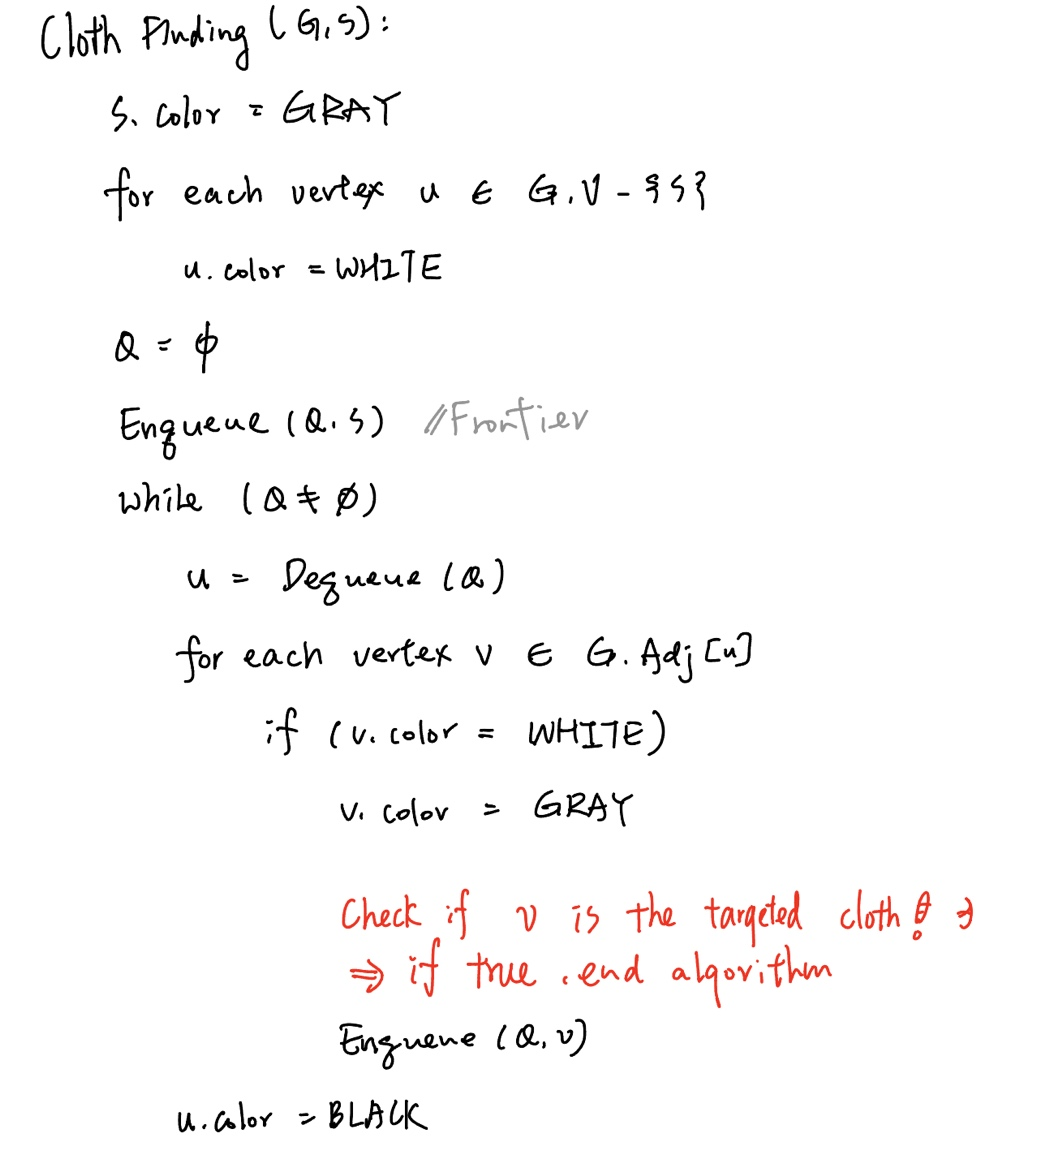 Cloth Finding (G, S):
S. color = GRAY
for each vertex u ∈ G.V - {S}
u. color = WHITE
Q = ϕ
Enqueue (Q, S) //Frontier
while (Q ≠ ∅)
u = Dequeue (Q)
for each vertex v ∈ G. Adj [u]
if (v. color = WHITE)
v. color = GRAY
Check if v is the targeted cloth!
⇒ if true, end algorithm
Enqueue (Q, v)
u. color = BLACK